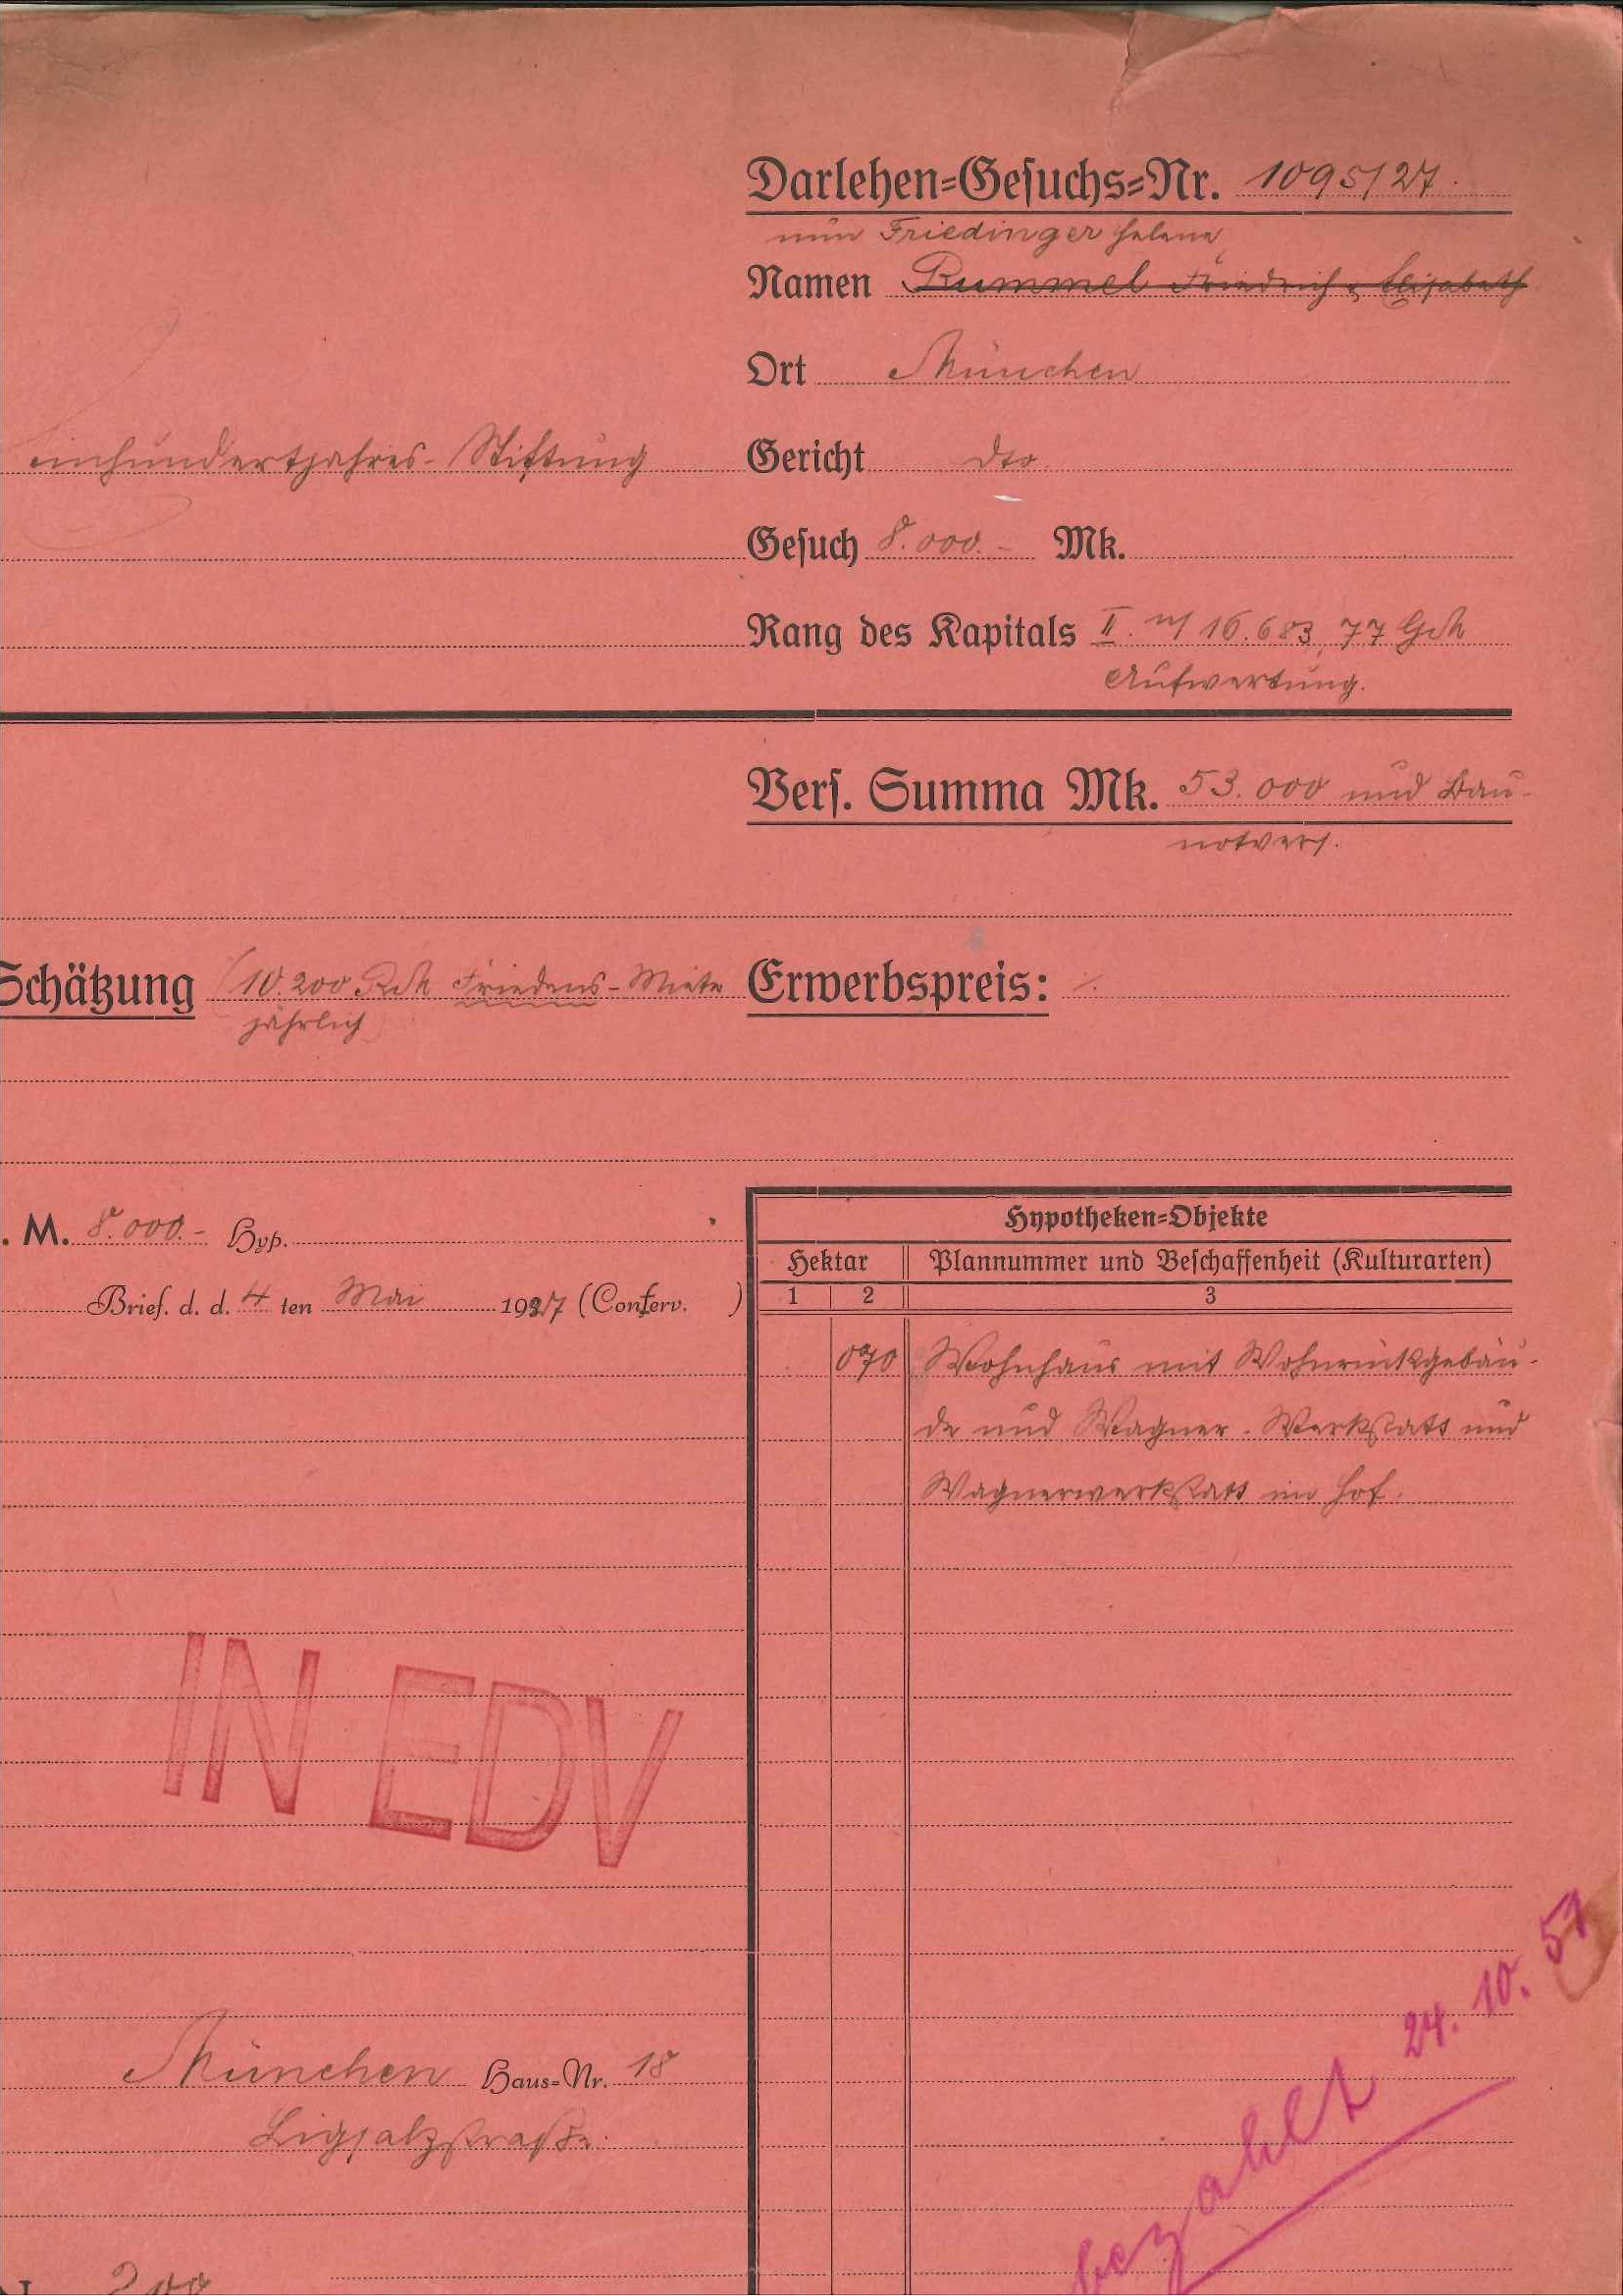 Darlehen=Gesuchs=Nr. 1095/27.
nun Friedinger Helene
Namen Rummel Friedrich u. Elisabeth
Ort München
einhundertjahres-Stiftung
Gericht dto
Gesuch 8.000.- Mk.
Rang des Kapitals II. n/ 16.683,77 GM
Aufwertung.
Vers. Summa Mk. 53.000 und Bau-
notvers.
Schätzung (10.200 RM Friedens-Miete
jährlich)
Erwerbspreis: ./.
. M. 8.000.- Hyp.
Brief. d. d. 4 ten Mai 1927 (Conserv. )
Hypotheken=Objekte
Hektar Plannummer und Beschaffenheit (Kulturarten)
1 2 3
070 Wohnhaus mit Wohnrückgebäu-
de und Wagner-Werkstatt und
Wagnerwerkstatt im Hof.
IN EDV
München Haus=Nr. 18
Ligsalzstraße.
bezahlt 24. 10. 51
200